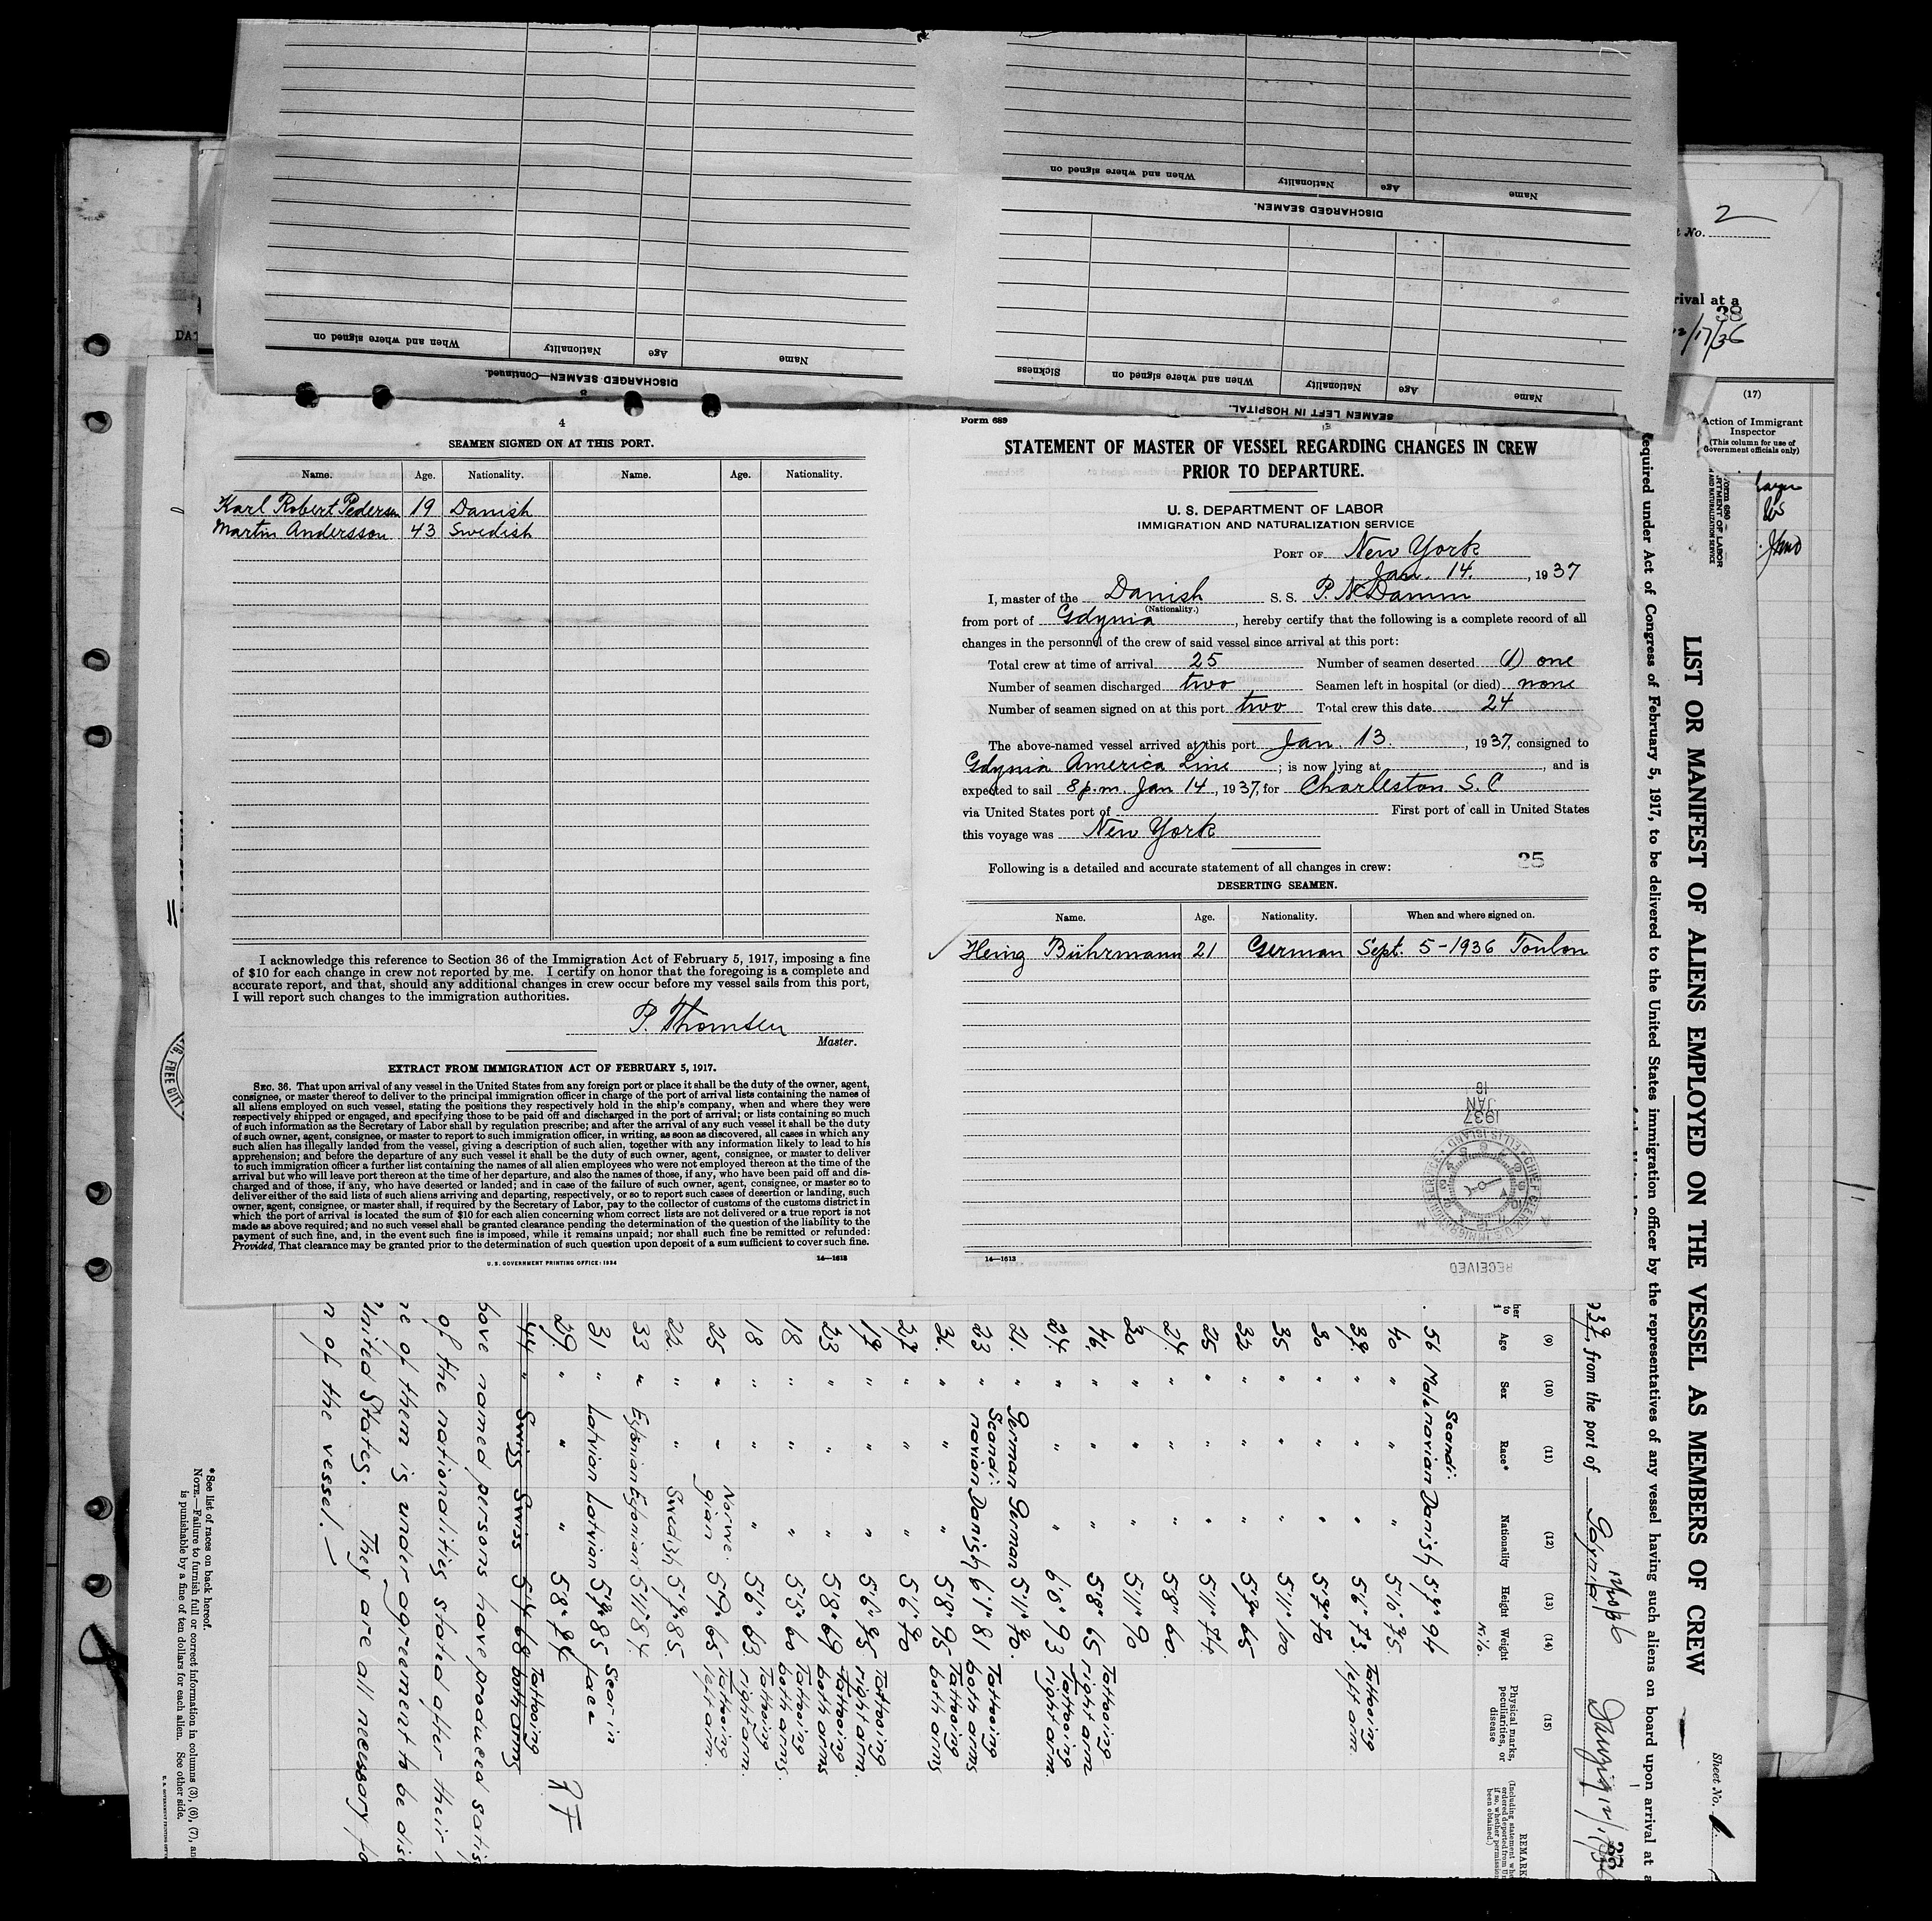 When and where signed on
Nationality
Age
Name
DISCHARGED SEAMEN.
Sickness
When and where signed on
Nationality
Age
Name
SEAMEN LEFT IN HOSPITAL.
When and where signed on
Nationality
Age
Name
DISCHARGED SEAMEN—Continued.
4
SEAMEN SIGNED ON AT THIS PORT.
Name. Age. Nationality. Name. Age. Nationality.
Karl Robert Pedersen 19 Danish
Martin Andersson 43 Swedish
I acknowledge this reference to Section 36 of the Immigration Act of February 5, 1917, imposing a fine
of $10 for each change in crew not reported by me. I certify on honor that the foregoing is a complete and
accurate report, and that, should any additional changes in crew occur before my vessel sails from this port,
I will report such changes to the immigration authorities.
P. Thomsen
Master.
EXTRACT FROM IMMIGRATION ACT OF FEBRUARY 5, 1917.
SEC. 36. That upon arrival of any vessel in the United States from any foreign port or place it shall be the duty of the owner, agent,
consignee, or master thereof to deliver to the principal immigration officer in charge of the port of arrival lists containing the names of
all aliens employed on such vessel, stating the positions they respectively hold in the ship's company, when and where they were
respectively shipped or engaged, and specifying those to be paid off and discharged in the port of arrival; or lists containing so much
of such information as the Secretary of Labor shall by regulation prescribe; and after the arrival of any such vessel it shall be the duty
of such owner, agent, consignee, or master to report to such immigration officer, in writing, as soon as discovered, all cases in which any
such alien has illegally landed from the vessel, giving a description of such alien, together with any information likely to lead to his
apprehension; and before the departure of any such vessel it shall be the duty of such owner, agent, consignee, or master to deliver
to such immigration officer a further list containing the names of all alien employees who were not employed thereon at the time of the
arrival but who will leave port thereon at the time of her departure, and also the names of those, if any, who have been paid off and dis-
charged and of those, if any, who have deserted or landed; and in case of the failure of such owner, agent, consignee, or master so to
deliver either of the said lists of such aliens arriving and departing, respectively, or so to report such cases of desertion or landing, such
owner, agent, consignee, or master shall, if required by the Secretary of Labor, pay to the collector of customs of the customs district in
which the port of arrival is located the sum of $10 for each alien concerning whom correct lists are not delivered or a true report is not
made as above required; and no such vessel shall be granted clearance pending the determination of the question of the liability to the
payment of such fine, and, in the event such fine is imposed, while it remains unpaid; nor shall such fine be remitted or refunded:
Provided, That clearance may be granted prior to the determination of such question upon deposit of a sum sufficient to cover such fine.
U. S. GOVERNMENT PRINTING OFFICE: 1934 14—1613
Form 689
STATEMENT OF MASTER OF VESSEL REGARDING CHANGES IN CREW
PRIOR TO DEPARTURE.
U. S. DEPARTMENT OF LABOR
IMMIGRATION AND NATURALIZATION SERVICE
PORT OF New York
Jan. 14., 1937
I, master of the Danish S. S. P. N. Damm
(Nationality.)
from port of Gdynia, hereby certify that the following is a complete record of all
changes in the personnel of the crew of said vessel since arrival at this port:
Total crew at time of arrival 25 Number of seamen deserted (1) one
Number of seamen discharged two Seamen left in hospital (or died) none
Number of seamen signed on at this port two Total crew this date 24
The above-named vessel arrived at this port Jan. 13., 1937, consigned to
Gdynia America Line; is now lying at , and is
expected to sail 8 p.m. Jan 14, 1937, for Charleston S. C
via United States port of First port of call in United States
this voyage was New York
25
Following is a detailed and accurate statement of all changes in crew:
DESERTING SEAMEN.
Name. Age. Nationality. When and where signed on.
Heinz Bührmann 21 German Sept. 5-1936 Toulon
14—1613
RECEIVED
1937
JAN
Sheet No.
LIST OR MANIFEST OF ALIENS EMPLOYED ON THE VESSEL AS MEMBERS OF CREW
Required under Act of Congress of February 5, 1917, to be delivered to the United States immigration officer by the representatives of any vessel having such aliens on board upon arrival at a
from the port of Gdynia Danzig
(9) (10) (11) (12) (13) (14) (15)
Age Sex Race* Nationality Height Weight Physical marks, peculiarities, or disease
56 Male Scandinavian Danish 5'7" 94
40 " " " 5'10" 75.
37. " " " 5'6" 73. Tattooing left arm
30 " " " 5'7" 70
35 " " " 5'11" 100
32 " " " 5'7" 65
25 " " " 5'11" 74.
27. " " " 5'8" 60.
20 " " " 5'11" 90
46. " " " 5'8" 65 Tattooing right arm
24. " " " 6'0" 93 Tattooing right arm.
21. " German German 5'11" 70.
23 " Scandinavian Danish 6'1" 81 Tattooing both arms
31. " " " 5'8" 95 Tattooing both arms
27 " " " 5'6" 70
19 " " " 5'6" 75 Tattooing right arm.
23 " " " 5'8" 69 Tattooing both arms
18 " " " 5'5" 60 Tattooing both arms.
18 " " " 5'6" 63. Tattooing right arm.
25 " " Norwegian 5'9" 65 Tattooing left arm.
22. " " Swedish 5'7" 85.
33 " Estonian Estonian 5'11" 84.
31 " Latvian Latvian 5'7" 85 Scar in face
29. " " " 5'8" 74
44 " Swiss Swiss 5'7" 68 Tattooing both arms
bove named persons have produced satis
of the nationalities stated after their
e of them is under agreement to be dis
United States. They are all necessary fo
n of the vessel.—
*See list of races on back hereof.
NOTE.—Failure to furnish full or correct information in columns (3), (6), (7), an
is punishable by a fine of ten dollars for each alien. See other side.
No. 2
rival at a
38
12/17/36
(17)
Action of Immigrant
Inspector
(This column for use of
Government officials only)
Form 680